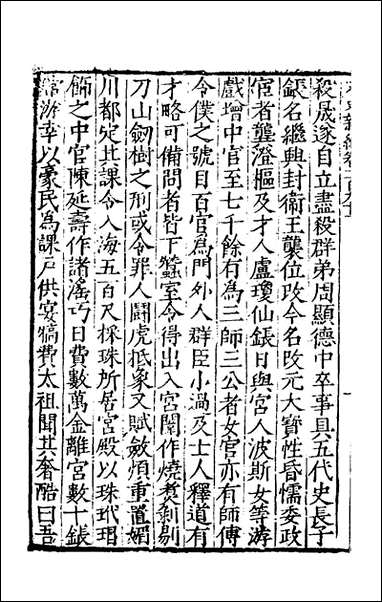 殺晟遂自立盡殺群弟周顯德中卒事具五代史長子
鋹名繼興封衛王襲位改今名改元大寶性昏懦委政
宦者龔澄樞及才人盧瓊仙鋹日與宮人波斯女等游
戲增中官至七千餘有為三師三公者女官亦有師傅
令僕之號目百官為門外人群臣小過及士人釋道有
才略可備問者皆下蠶室令得出入宮闈作燒煑剝剔
刀山劔樹之刑或令罪人鬪虎抵象又賦斂煩重置媚
川都定其課令入海五百尺採珠所居宮殿以珠玳瑁
飾之中官陳延壽作諸滛巧日費數萬金離宮數十鋹
常游幸以豪民為課戸供宴犒費太祖聞其奢酷曰吾